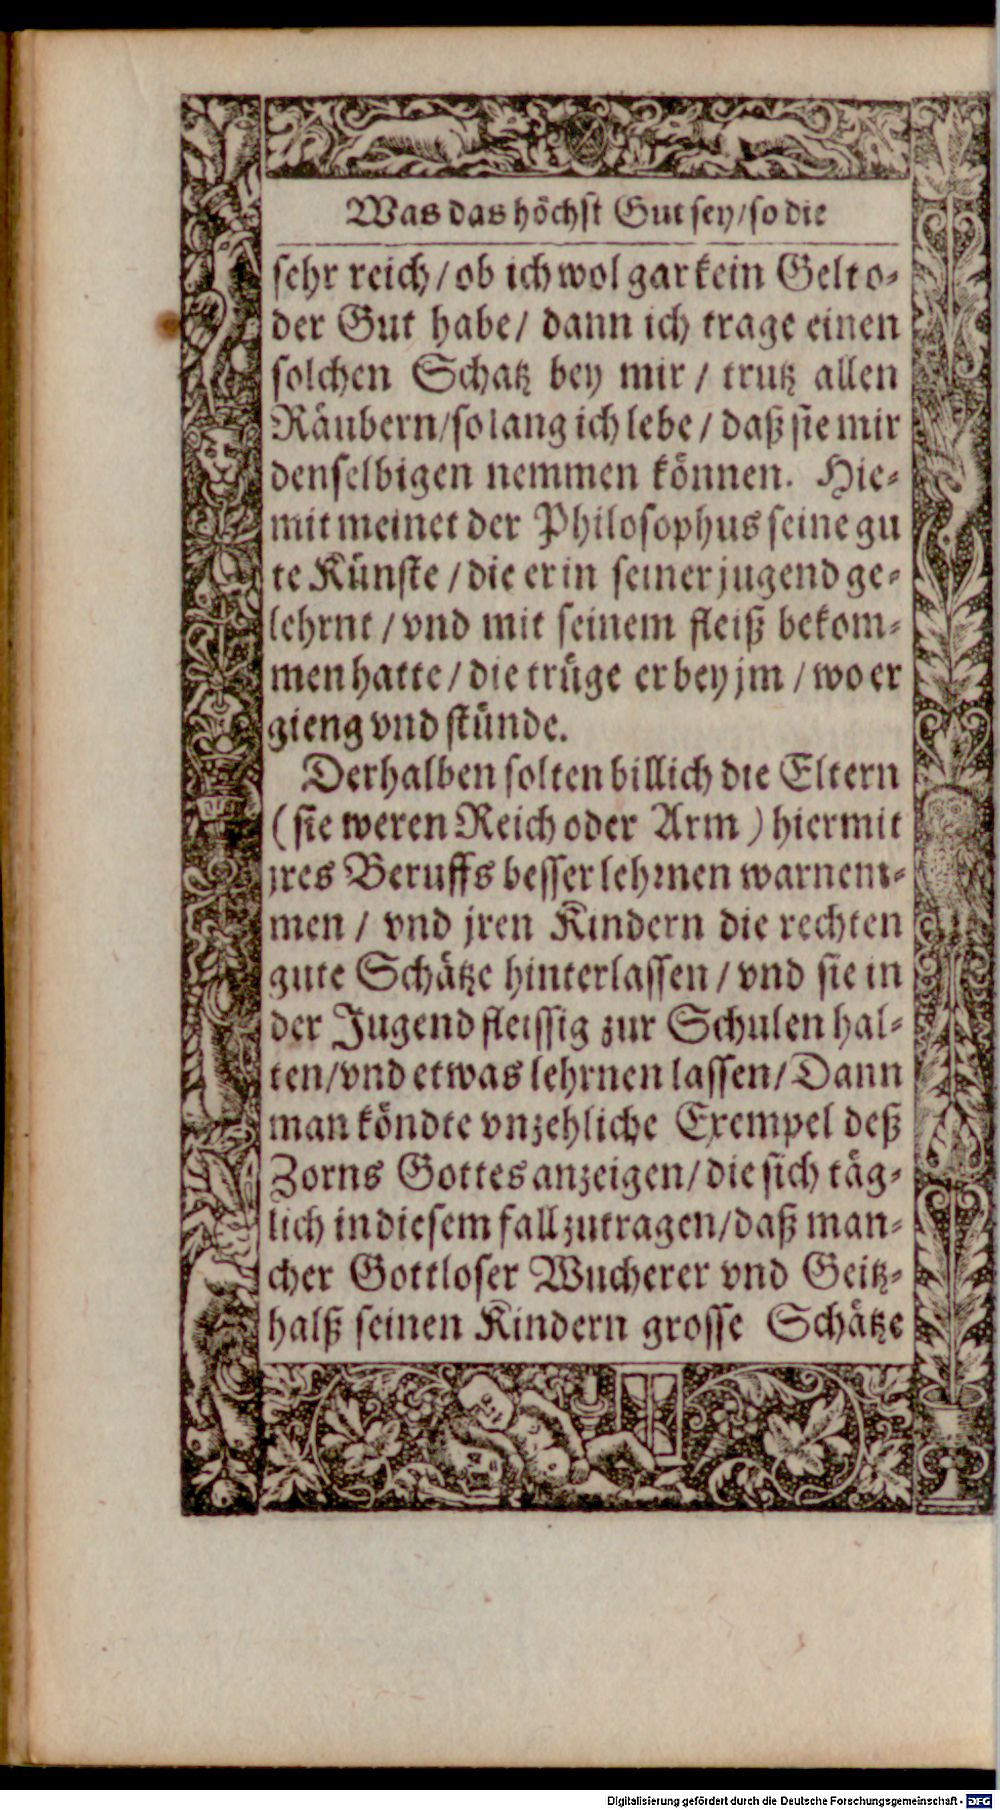 Was das höchst Gut sey/so die
sehr reich/ob ich wol gar kein Gelt o-
der Gut habe/ dann ich trage einen
solchen Schatz bey mir/ trutz allen
Räubern/so lang ich lebe/ daß sie mir
denselbigen nemmen können. Hie-
mit meinet der Philosophus seine gu
te Künste/die er in seiner jugend ge-
lehrnt/vnd mit seinem fleiß bekom-
men hatte/die trüge er bey jm/wo er
gieng vnd stünde.
Derhalben solten billich die Eltern
(sie weren Reich oder Arm) hiermit
jres Beruffs besser lehrnen warnem-
men/ vnd jren Kindern die rechten
gute Schätze hinterlassen/vnd sie in
der Jugend fleissig zur Schulen hal-
ten/vnd etwas lehrnen lassen/Dann
man köndte vnzehliche Exempel deß
Zorns Gottes anzeigen/die sich täg-
lich in diesem fall zutragen/daß man-
cher Gottloser Wucherer vnd Geitz-
halß seinen Kindern grosse Schätze
Digitalisierung gefördert durch die Deutsche Forschungsgemeinschaft - DFG